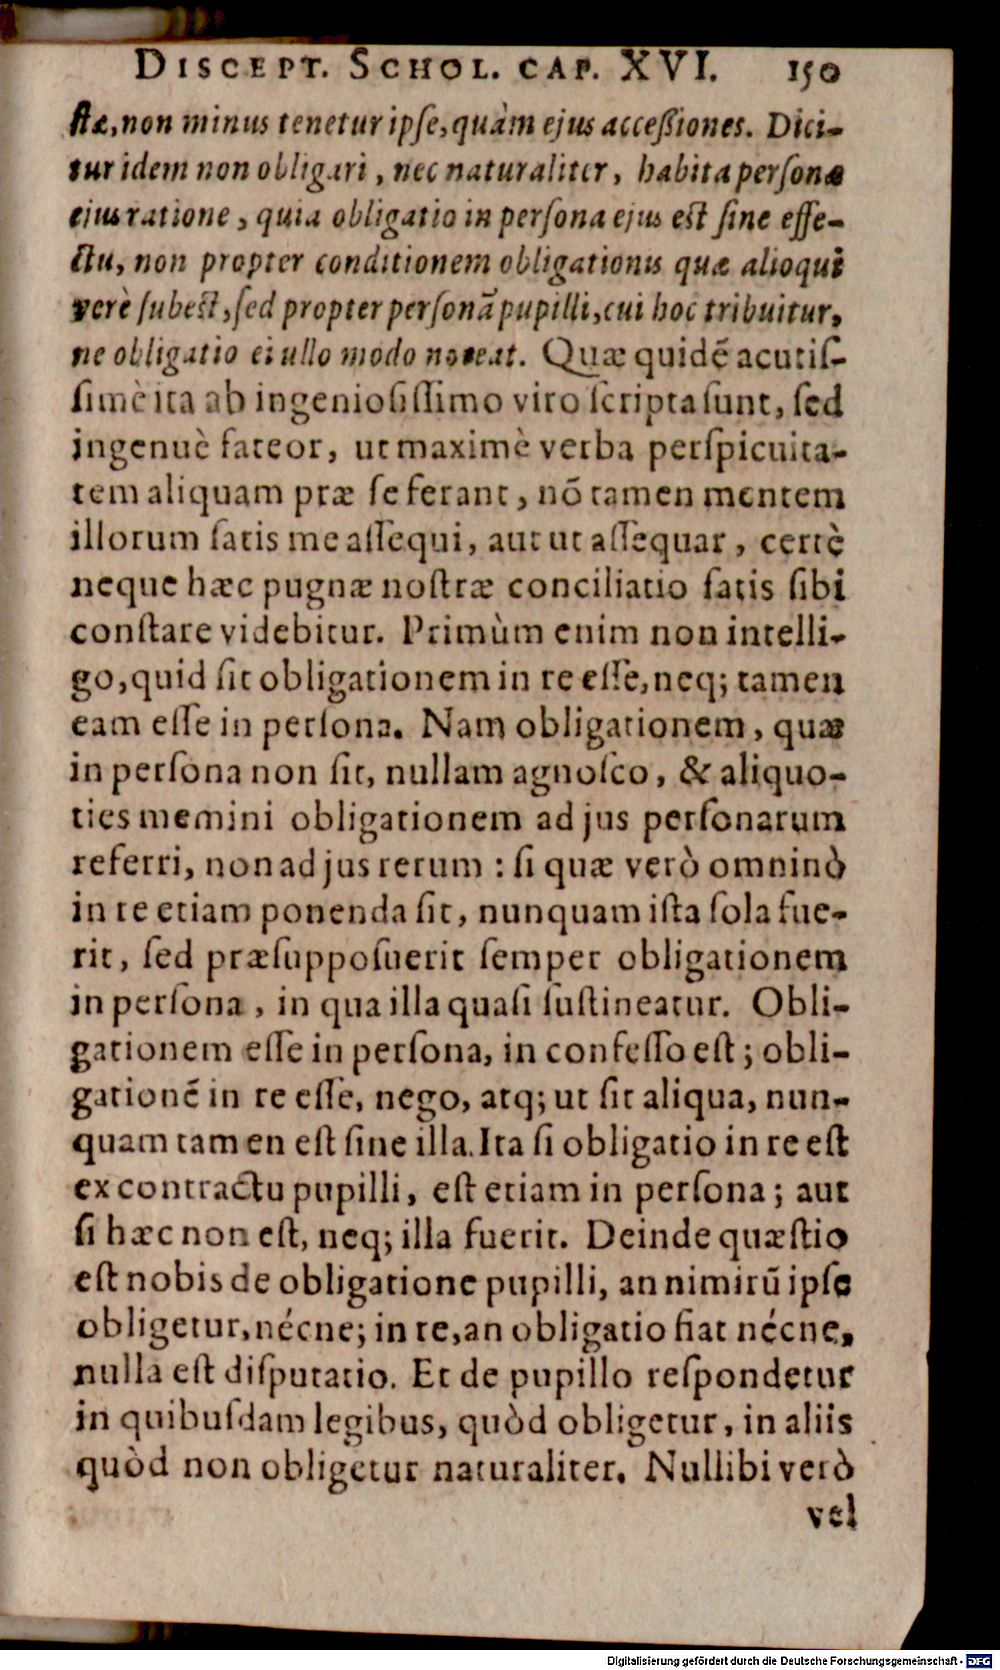 DISCEPT. SCHOL. CAP. XVI. 150
ſtæ, non minus tenetur ipſe, quàm ejus acceſsiones. Dici-
tur idem non obligari, nec naturaliter, habita personæ
ejus ratione, quia obligatio in perſona ejus eſt ſine effe-
ctu, non propter conditionem obligationis quæ alioqui
verè ſubeſt, ſed propter perſonã pupilli, cui hoc tribuitur,
ne obligatio ei ullo modo noceat. Quæ quidẽ acutiſ-
ſimè ita ab ingenioſiſſimo viro ſcripta ſunt, ſed
ingenuè fateor, ut maximè verba perſpicuita-
tem aliquam præ ſe ferant, nõ tamen mentem
illorum ſatis me aſſequi, aut ut aſſequar, certè
neque hæc pugnæ noſtræ conciliatio ſatis ſibi
conſtare videbitur. Primùm enim non intelli-
go, quid ſit obligationem in re eſſe, neq; tamen
eam eſſe in perſona. Nam obligationem, quæ
in perſona non ſit, nullam agnoſco, & aliquo-
ties memini obligationem ad jus perſonarum
referri, non ad jus rerum : ſi quæ verò omninò
in re etiam ponenda ſit, nunquam iſta ſola fue-
rit, ſed præſuppoſuerit ſemper obligationem
in perſona, in qua illa quaſi ſuſtineatur. Obli-
gationem eſſe in perſona, in confeſſo eſt; obli-
gationẽ in re eſſe, nego, atq; ut ſit aliqua, nun-
quam tamen eſt ſine illa. Ita ſi obligatio in re eſt
ex contractu pupilli, eſt etiam in perſona; aut
ſi hæc non eſt, neq; illa fuerit. Deinde quæſtio
eſt nobis de obligatione pupilli, an nimirũ ipſe
obligetur, nécne; in re, an obligatio fiat nécne,
nulla eſt diſputatio. Et de pupillo reſpondetur
in quibuſdam legibus, quòd obligetur, in aliis
quòd non obligetur naturaliter. Nullibi verò
vel
Digitalisierung gefördert durch die Deutsche Forschungsgemeinschaft - DFG